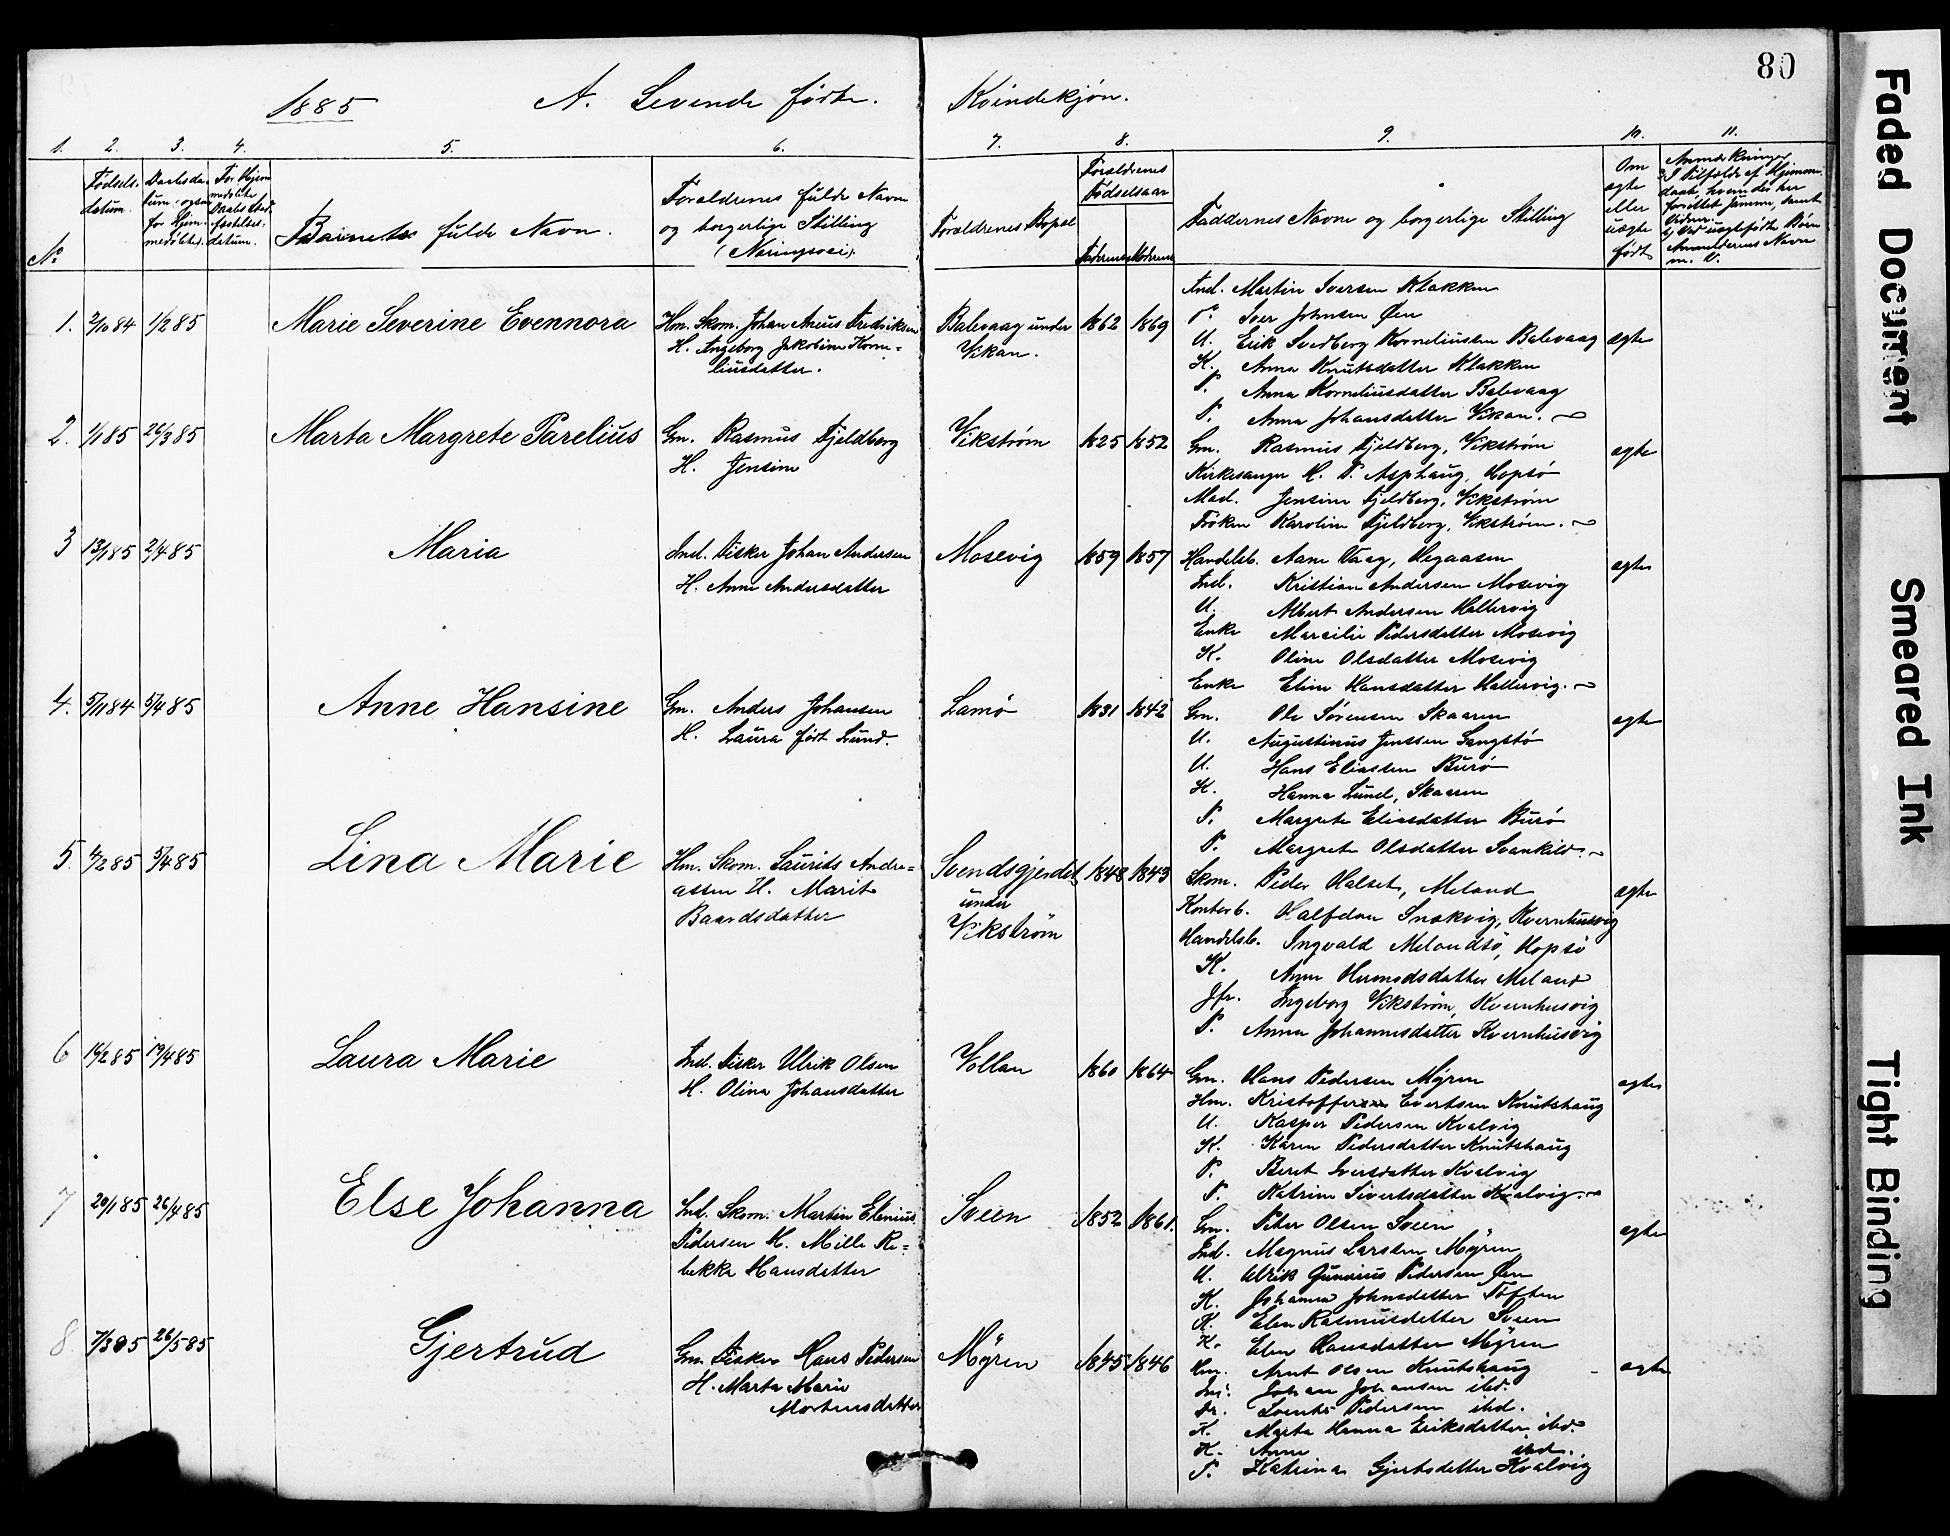 80
1885 A. Levende fødte. Kvindekjøn.
1. 2. 3. 4. 5. 6. 7. 8. 9. 10. 11.
No
Fødsels-
datum.
Daabsda-
tum, ogsaa
for Hjem-
medøbte.
For Hjem
medøbte
Daabs Stad-
fæstelses-
datum.
Barnets fulde Navn.
Forældrenes fulde Navn
og borgerlige Stilling
(Næringsvei).
Forældrenes Bopæl
Forældrenes
Fødselsaar
Faderens Moderens
Faddernes Navne og borgerlige Stilling
Om
ægte
eller
uægte
født
Anmærkninger
I Tilfælde af Hjemme-
daab, hvem der har
forrettet samme, samt
Vidner.
Ved uægtefødte Børn
Anmelderens Navn
m. V.
1. 2/10 84 1/2 85 Marie Severine Evennora
Hm. Skom. Johan Aneus Fredriksen
H. Ingeborg Jakobine Korne-
liusdatter.
Balevaag under
Vikan.
1862 1869
Ind. Martin Iversen Klakken
Iver Johnsen Øen
U. Erik Svedberg Korneliussen Balevaag
K. Anna Knutsdatter Klakken
P. Anna Korneliusdatter Balevaag
P. Anna Johansdatter Vikan.
ægte
2. 1/1 85 26/3 85 Marta Margrete Parelius
Gm. Rasmus Fjeldberg
H. Jensine
Vikstrøm
1825 1852
Gm. Rasmus Fjeldberg, Vikstrøm
Kirkesanger H. P. Asphaug, Hopsø
Mad. Jensine Fjeldberg, Vikstrøm
Frøken Karoline Fjeldberg, Vikstrøm.
ægte
3 13/1 85 2/4 85 Maria
Ind. Fisker Johan Andersen
H. Anne Andersdatter
Mosevig
1859 1857
Handelsb. Aane Vaag, Hegaasen
Ind. Kristian Andersen Mosevig
U. Albert Andersen Hallervig
Enke Marcilie Pedersdatter Mosevig
K. Oline Olsdatter Mosevig
Enke Eline Hansdatter Hallervig.
ægte
4. 5/11 84 5/4 85 Anne Hansine
Gm. Anders Johansen
H. Laura født Lund.
Lamø
1831 1842
Gm. Ole Sørensen Skaaren
U. Augustinus Jenssen Langstø
U. Hans Eliassen Burø
K. Hanna Lund, Skaaren
P. Margrete Eliasdatter Burø
P. Margrete Olsdatter Svankild.
ægte
5. 4/2 85 5/4 85 Lina Marie
Hm. Skom. Laurits Andre-
assen H. Marit
Baardsdatter
Svendsgjerdet
under
Vikstrøm
1848 1843
Skom. Peder Halset, Meland
Kontorb. Halfdan Snekvig, Kvernhusvig
Handelsb. Ingvald Melandsø, Hopsø
K. Anne Hermodsdatter Meland
Jfr. Ingeborg Vikstrøm, Kvernhusvig
P. Anna Johannesdatter Kvernhusvig
ægte
6 14/2 85 19/4 85 Laura Marie
Ind. Fisker Ulrik Olsen
H. Olina Johansdatter
Vollan
1860 1864
Gm. Hans Pedersen Myren
Hm. Kristoffer Evertsen Knutshaug
U. Kasper Pedersen Kvalvig
K. Karen Pedersdatter Knutshaug
P. Beret Iversdatter Kvalvig
P. Katrine Sivertsdatter Kvalvig.
ægte
7 29/1 85 26/4 85 Else Johanna
Ind. Skom. Martin Elenius
Pedersen H. Mille Re-
bekka Hansdatter
Sveen
1852 1861.
Gm. Peter Olsen Sveen
Ind. Magnus Larssen Myren
U. Ulrik Gunerius Pedersen Øen
K. Johanna Johnsdatter Toften
K. Elen Rasmusdatter Sveen
K. Elen Hansdatter Myren
ægte
8. 7/3 85 26/5 85 Gjertrud
Gm. Fisker Hans Pedersen
H. Marta Marie
Mortensdatter
Myren
1845 1846
Hm. Arnt Olsen Knutshaug
Ind. Johan Johansen ibd.
Dr. Lorents Pedersen ibd.
K. Marta Hanna Eriksdatter ibd.
K. Anne ibd.
P. Katrina Gjertsdatter Kvalvig
ægte
Faded Document
Smeared Ink
Tight Binding